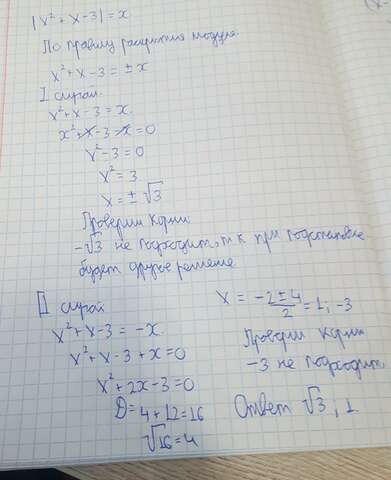 |x² + x - 3| = x
По правилу раскрытия модуля.
x² + x - 3 = ± x
I случай.
x² + x - 3 = x.
x² + x - 3 - x = 0
x² - 3 = 0
x² = 3
x = ± √3
Проверим корни
-√3 не подходит, т к при подстановке
будет другое решение
II случай
x² + x - 3 = -x.
x² + x - 3 + x = 0
x² + 2x - 3 = 0
D = 4 + 12 = 16
√16 = 4
x = -2 ± 4 / 2 = 1; -3
Проверим корни
-3 не подходит.
Ответ √3, 1